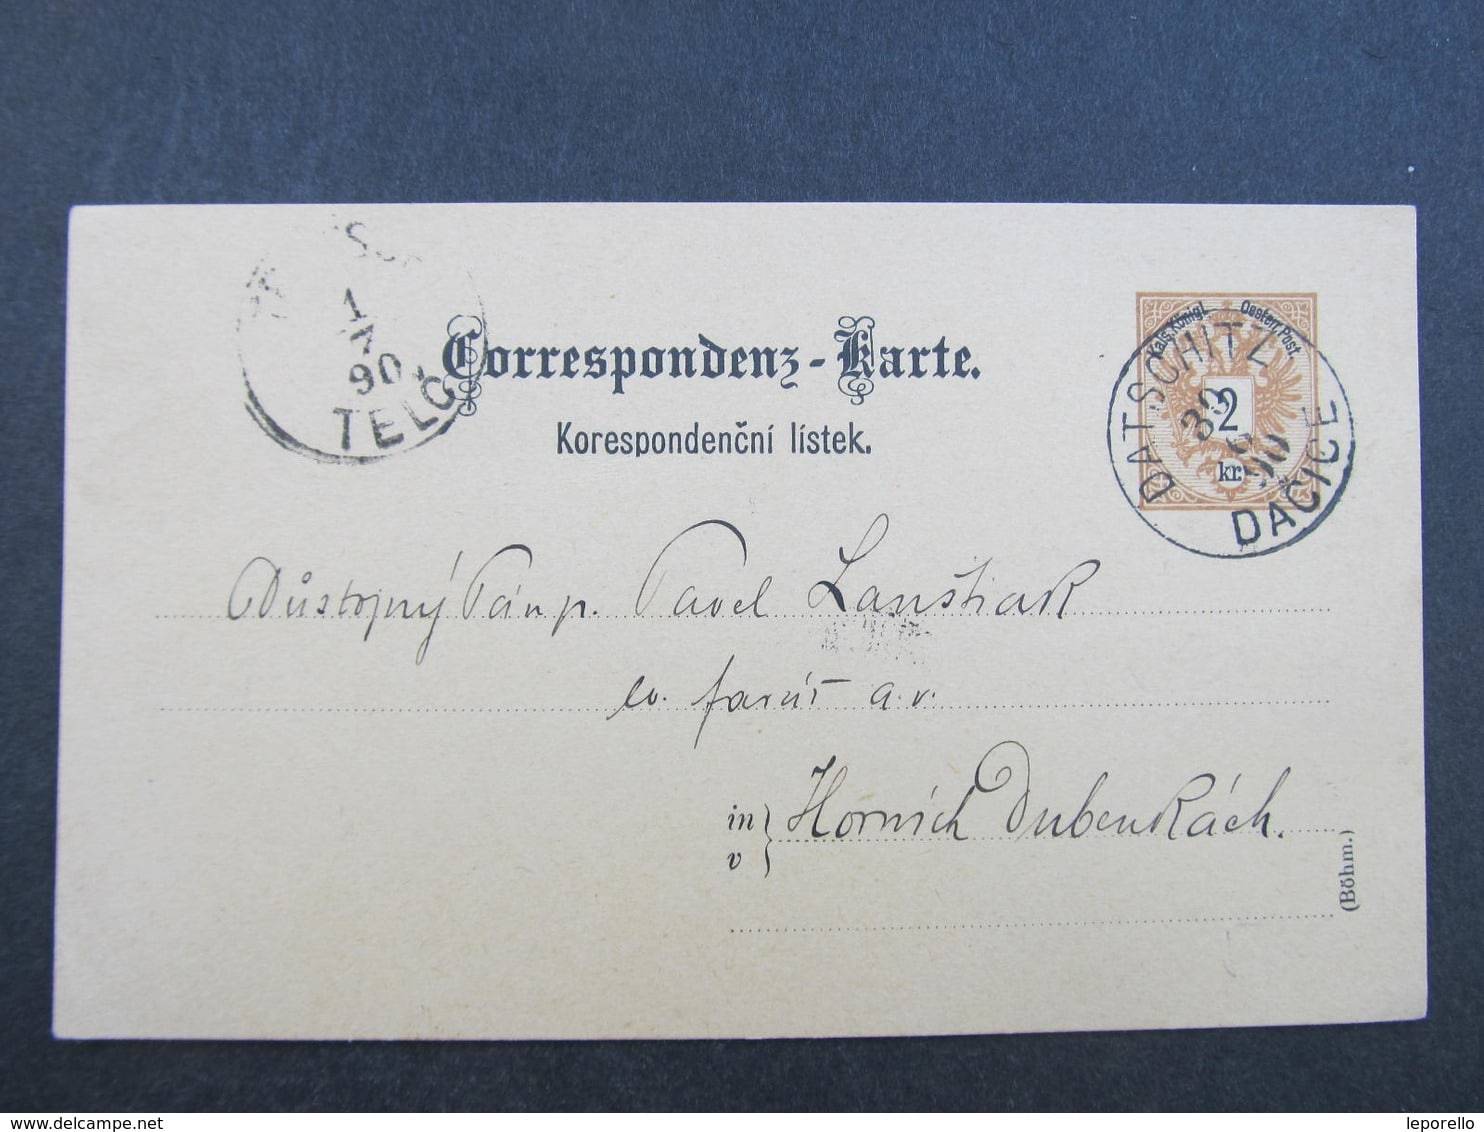 1
7
90
TELČ
Correspondenz-Karte.
Korespondenční lístek.
Kais. Königl. Oesterr. Post.
2
kr.
DATSCHITZ
30
6
90
DAČICE
Důstojný Pán p. Pavel Lanštiak
ev. farář a. v.
in
v
Horních Dubenkách.
(Böhm.)
leporello
delcampe.net